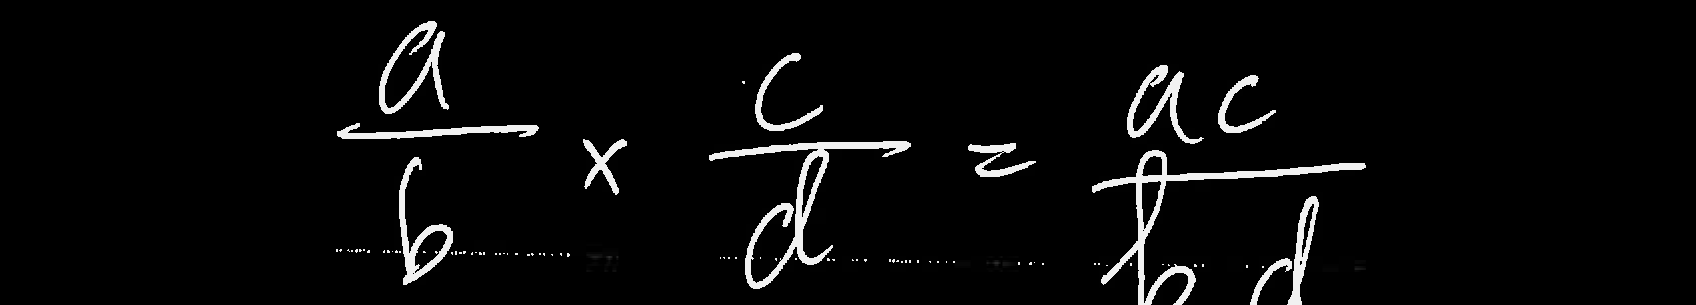 a/b × c/d = ac/bd